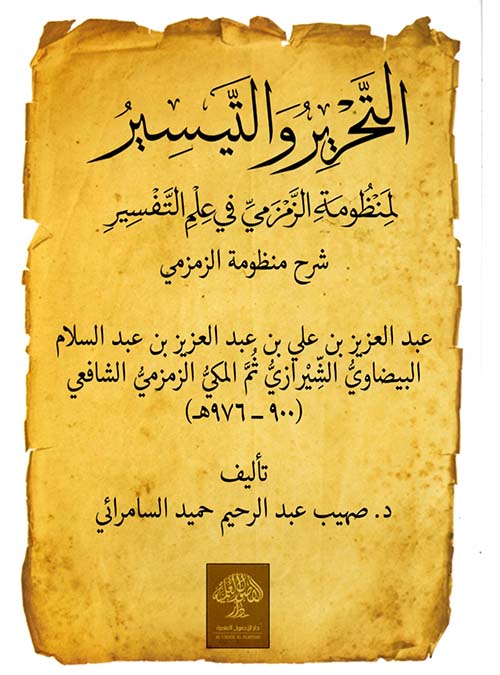 التَّحْرِيرُ وَالتَّيسِيرُ
لِمَنْظُومَةِ الزَّمْزَمِيِّ فِي عِلْمِ التَّفْسِيرِ
شرح منظومة الزمزمي
عبد العزيز بن علي بن عبد العزيز بن عبد السلام
البيضاويُّ الشِّيرازيُّ ثُمَّ المكيُّ الزمزميُّ الشافعي
(٩٠٠ – ٩٧٦هـ)
تأليف
د. صهيب عبد الرحيم حميد السامرائي